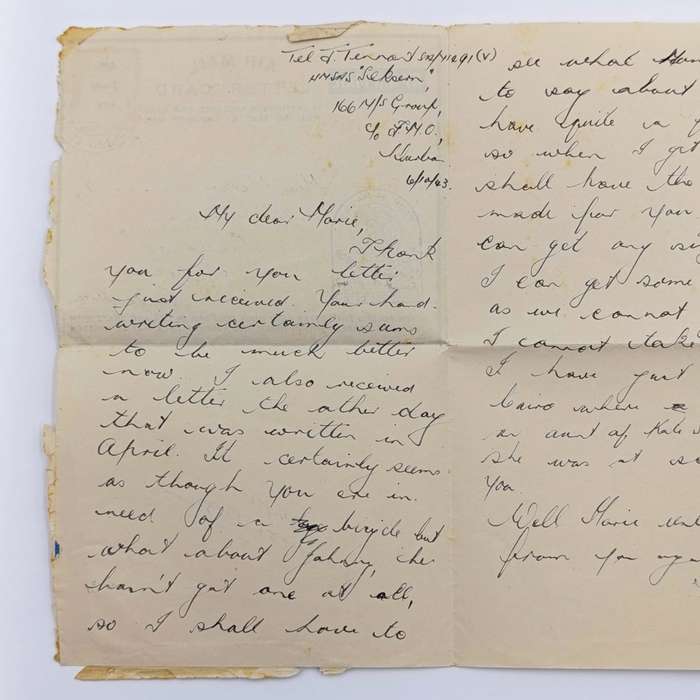 HMSAS "Seksern",
166 M/S Group,
c/o F.M.O.,
Durban
6/10/43.
My dear Marie,
Thank
you for you letter
just received. Your hand-
writing certainly seems
to be much better
now. I also received
a letter the other day
that was written in
April. It certainly seems
as though you are in
need of a bicycle but
what about Johnny, he
hasn't got one at all,
so I shall have to
see what
to say about
have quite a
so when I get
shall have the
made for you
can get any
I can get some
as we cannot
I cannot take
I have just
Cairo where
an aunt of Kate
she was at
you.
Well Marie
from you
AIR MAIL
LETTER CARD